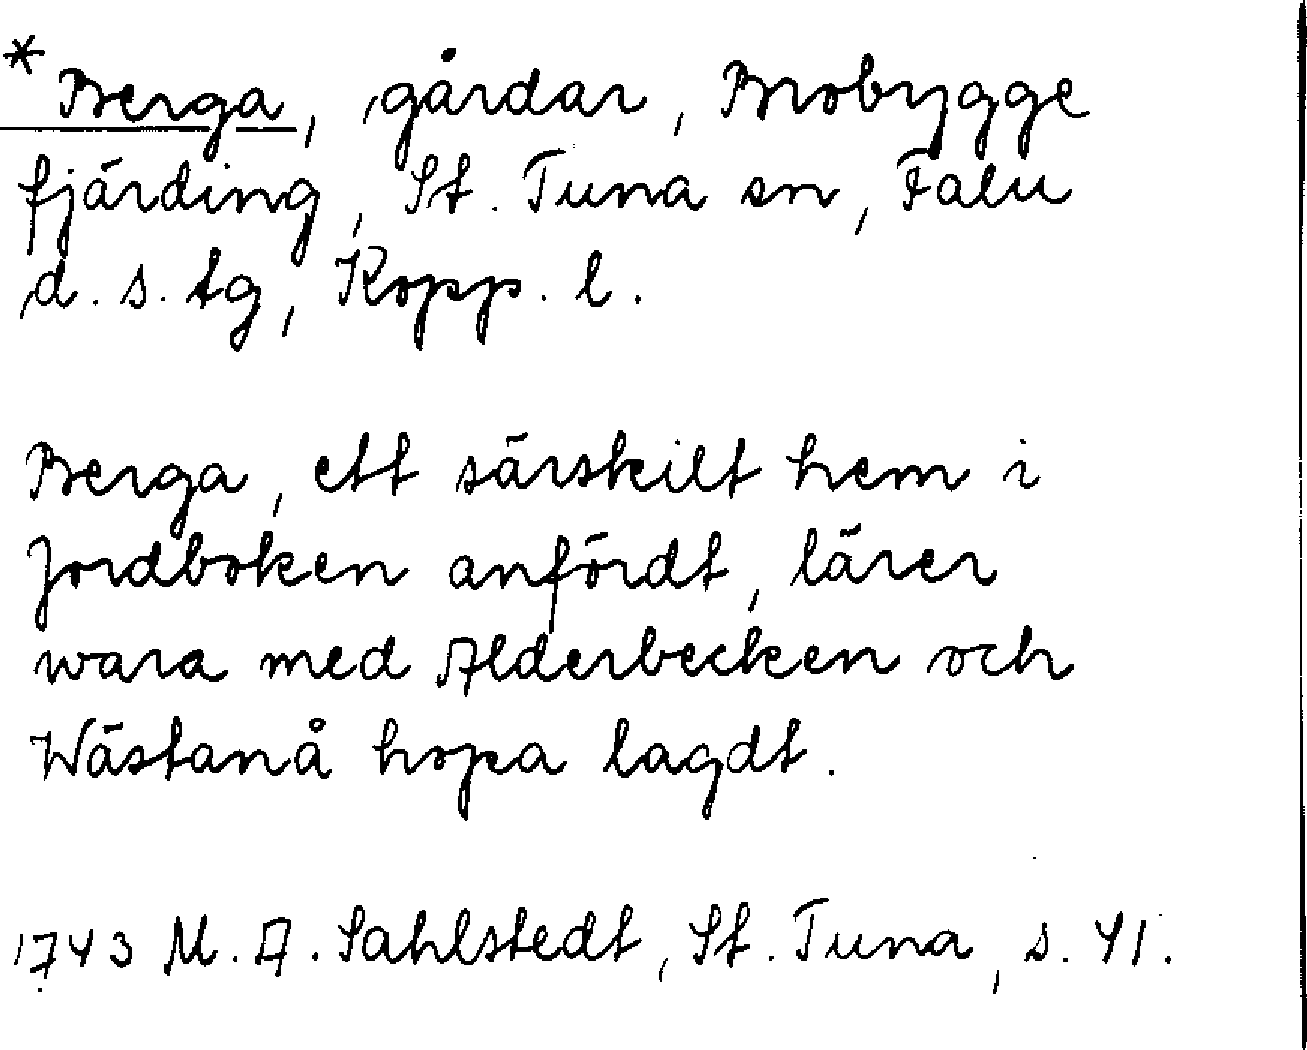 * Berga, gårdar, Brobygge
fjärding, St. Tuna sn, Falu
d. s. tg, Kopp. l.
Berga, ett särskilt hem i
Jordboken anfördt, lärer
wara med Alderbecken och
Wästanå hopa lagdt.
1743 M. A. Sahlstedt, St. Tuna, s. 41.